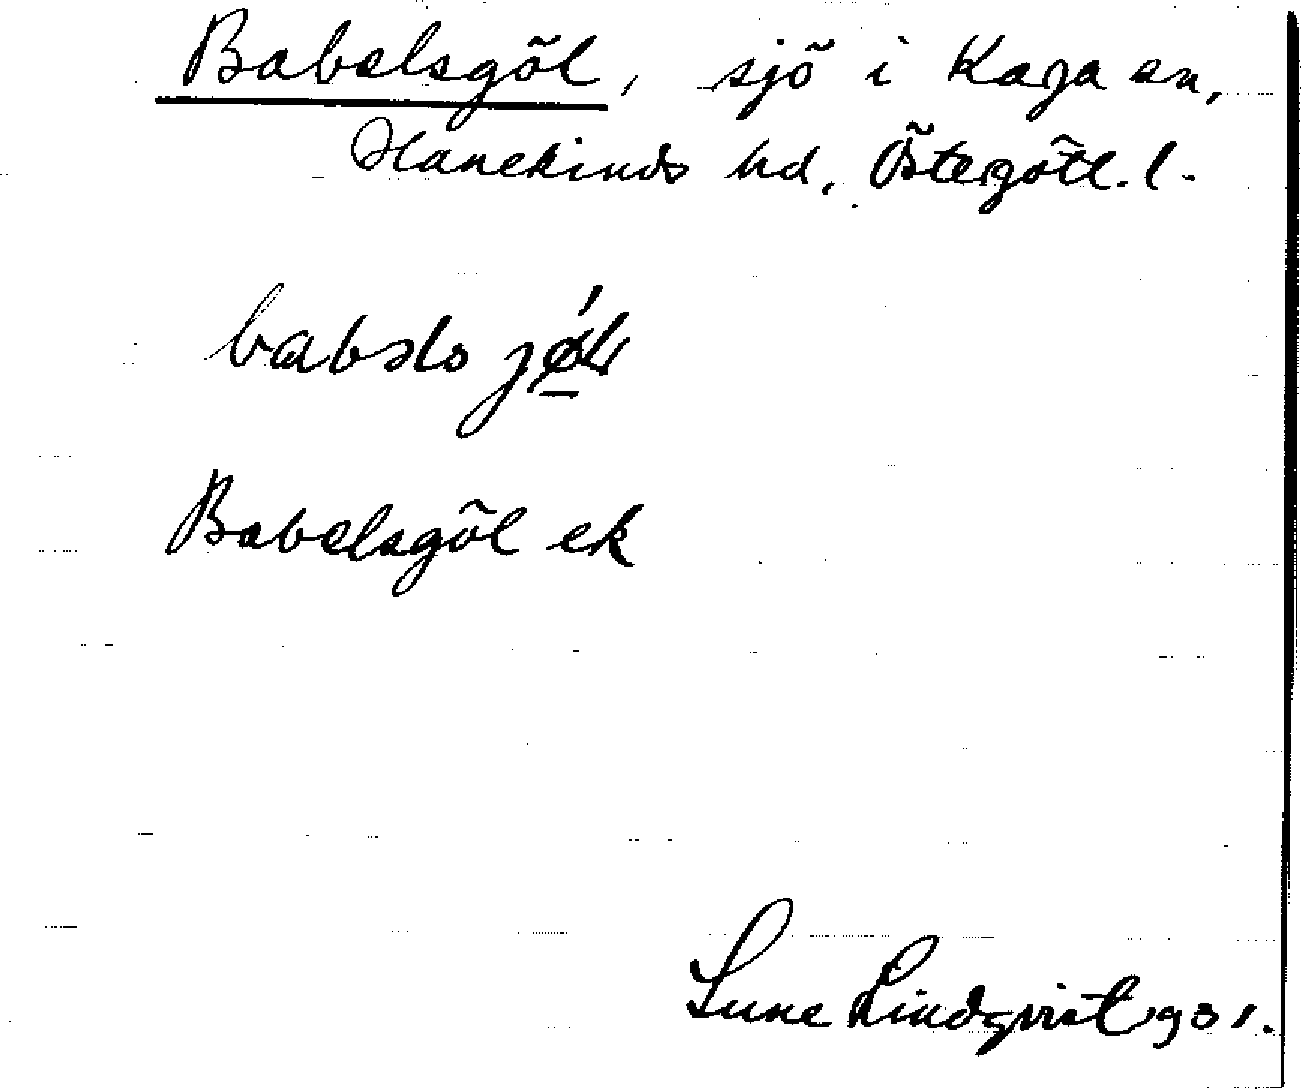 Babelsgöl, sjö i Kaga sn,
Hanekinds hd, Östergötl. l.
Babelsgöl ek
Sune Lindqvist 931.